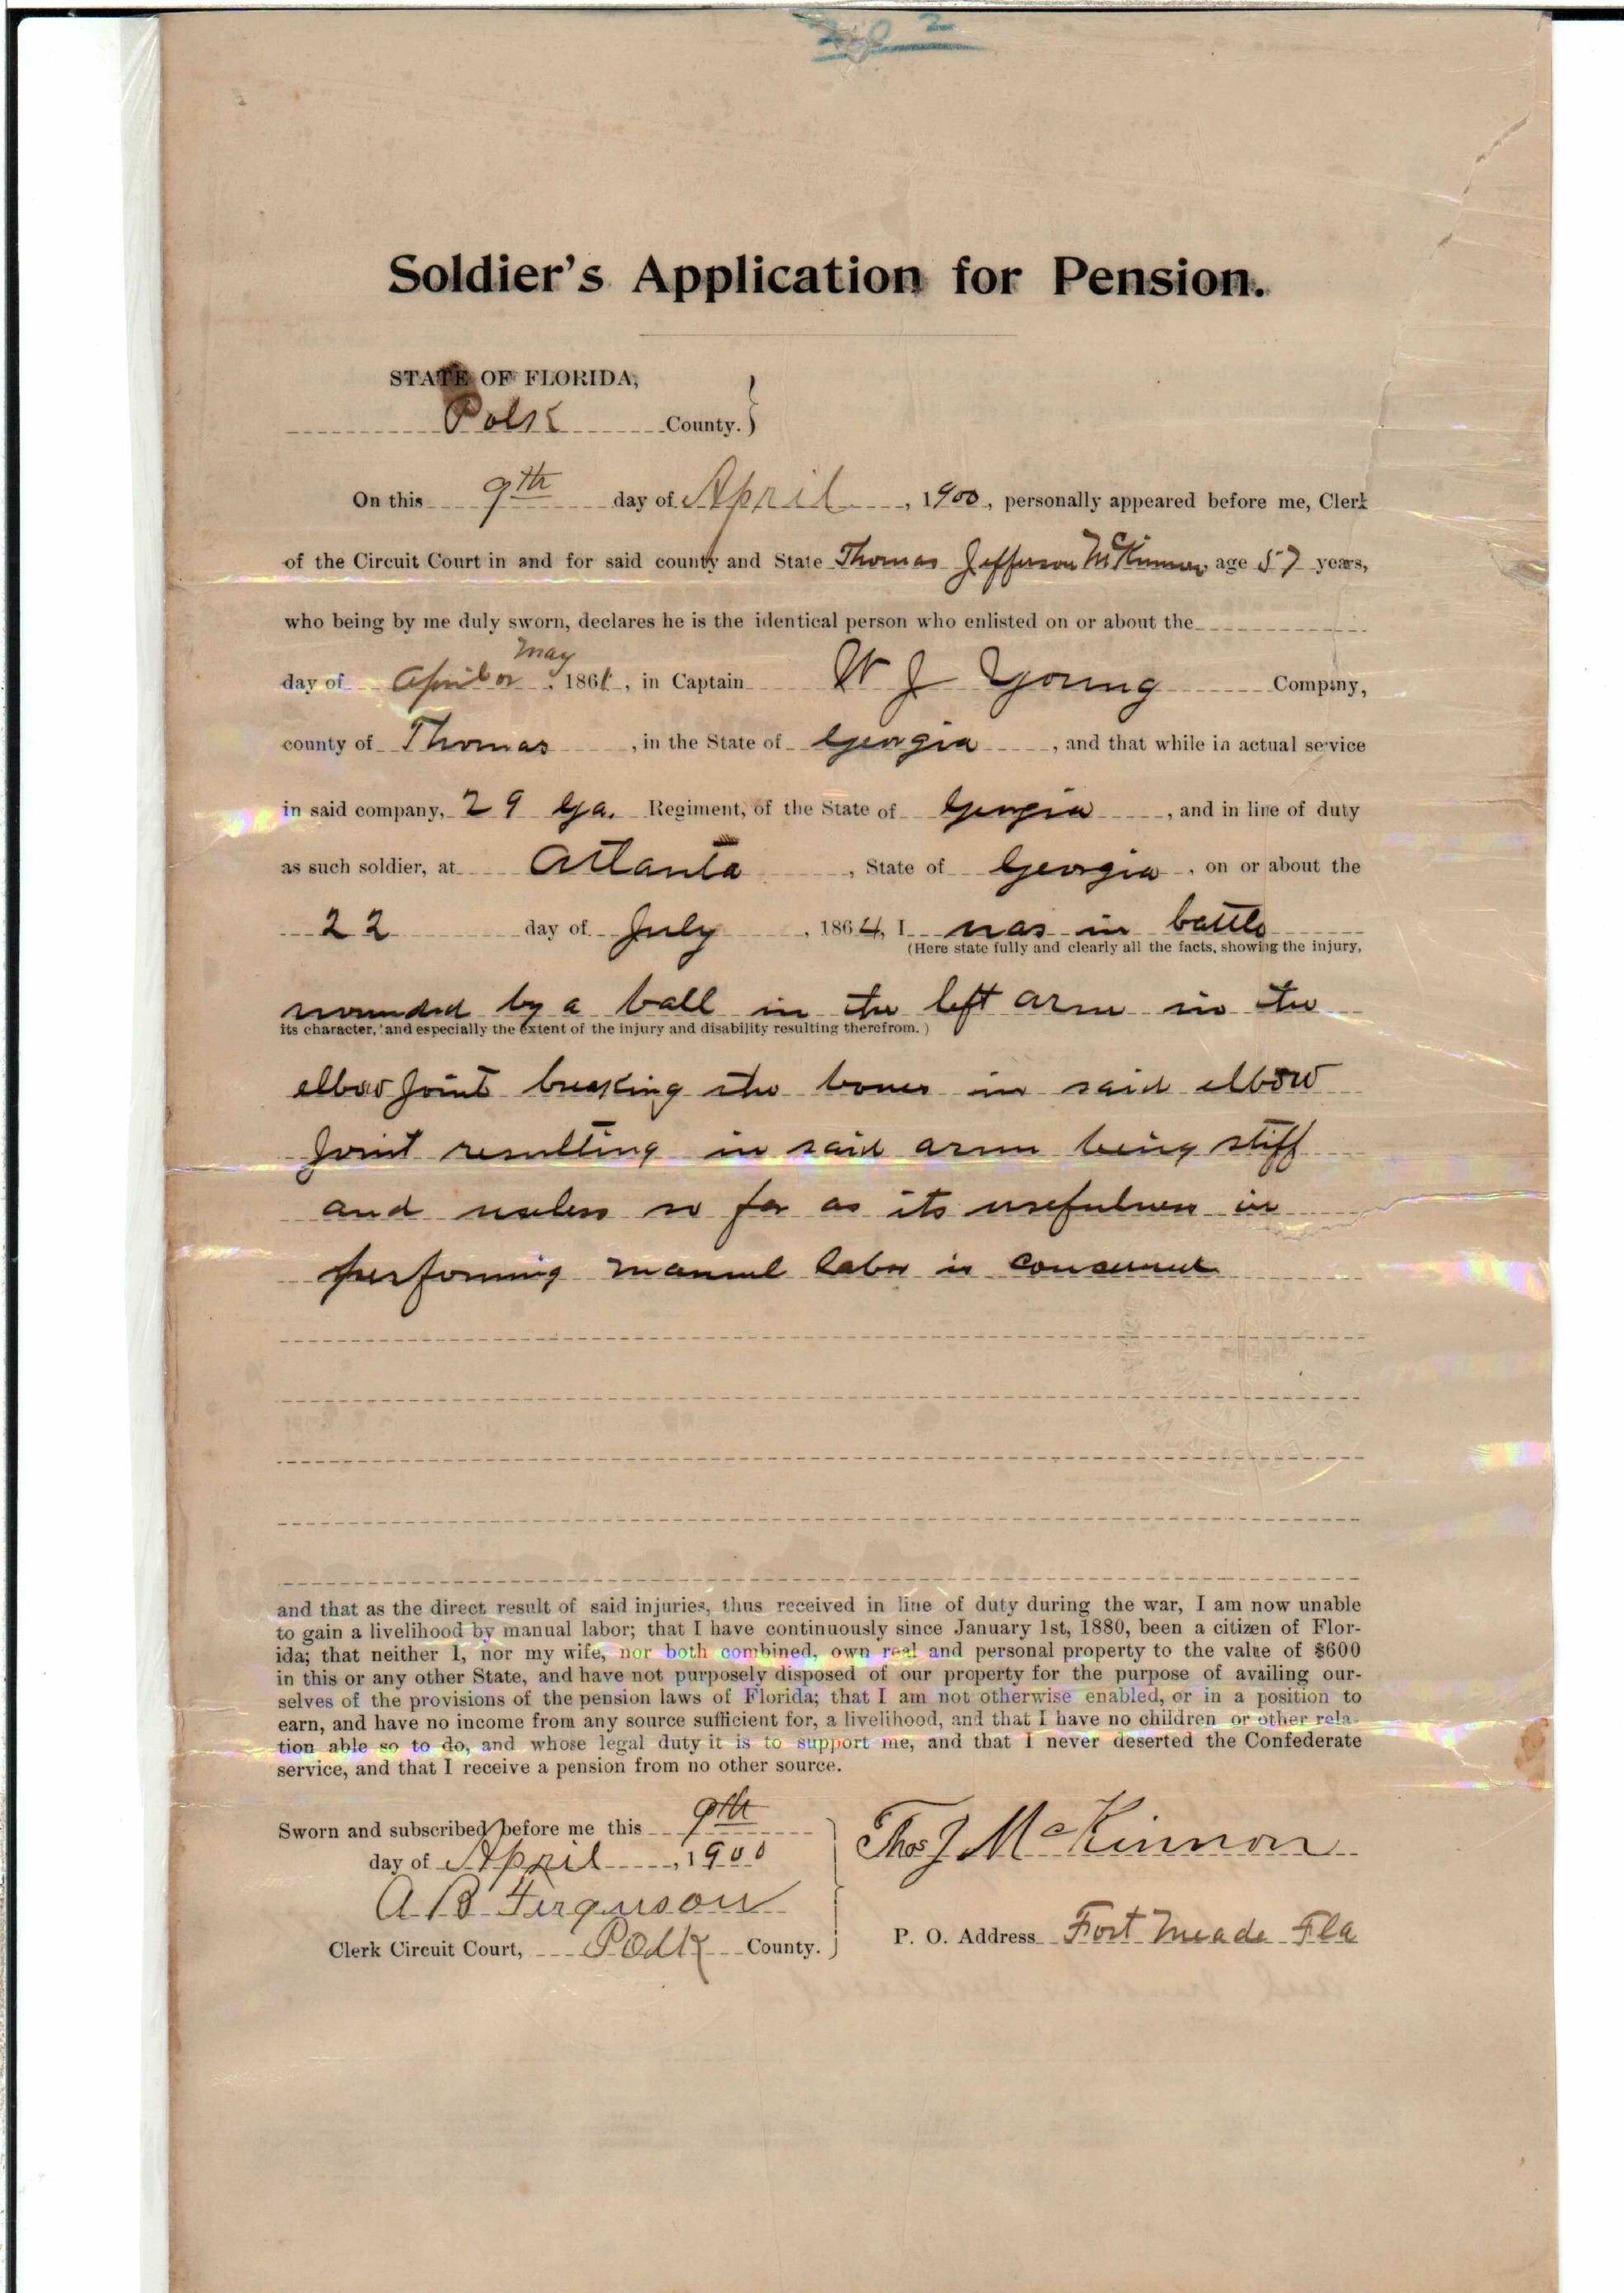 Soldier's Application for Pension.
STATE OF FLORIDA,
Polk County. }
On this 9th day of April, 1900, personally appeared before me, Clerk
of the Circuit Court in and for said county and State Thomas Jefferson McKinnon age 57 years,
who being by me duly sworn, declares he is the identical person who enlisted on or about the
may
day of April or, 1861, in Captain W J Young Company,
county of Thomas, in the State of Georgia, and that while in actual service
in said company, 29 Ga. Regiment, of the State of Georgia, and in line of duty
as such soldier, at Atlanta, State of Georgia, on or about the
22 day of July, 1864, I was in battle
(Here state fully and clearly all the facts, showing the injury,
wounded by a ball in the left arm in the
its character, and especially the extent of the injury and disability resulting therefrom.)
elbow joint breaking the bones in said elbow
joint resulting in said arm being stiff
and useless so far as its usefulness in
performing manuel labor is concerned
and that as the direct result of said injuries, thus received in line of duty during the war, I am now unable
to gain a livelihood by manual labor; that I have continuously since January 1st, 1880, been a citizen of Flor-
ida; that neither I, nor my wife, nor both combined, own real and personal property to the value of $600
in this or any other State, and have not purposely disposed of our property for the purpose of availing our-
selves of the provisions of the pension laws of Florida; that I am not otherwise enabled, or in a position to
earn, and have no income from any source sufficient for, a livelihood, and that I have no children or other rela-
tion able so to do, and whose legal duty it is to support me, and that I never deserted the Confederate
service, and that I receive a pension from no other source.
Sworn and subscribed before me this 9th
day of April, 1900
A B Ferguson
Clerk Circuit Court, Polk County. }
Thos J McKinnon
P. O. Address Fort Meade Fla